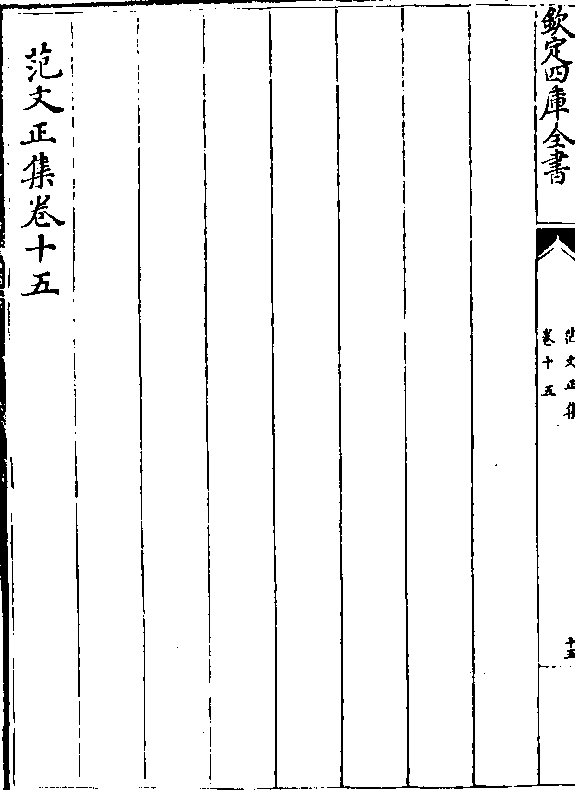 欽定四庫全書
范文正集
卷十五
十五
范文正集卷十五